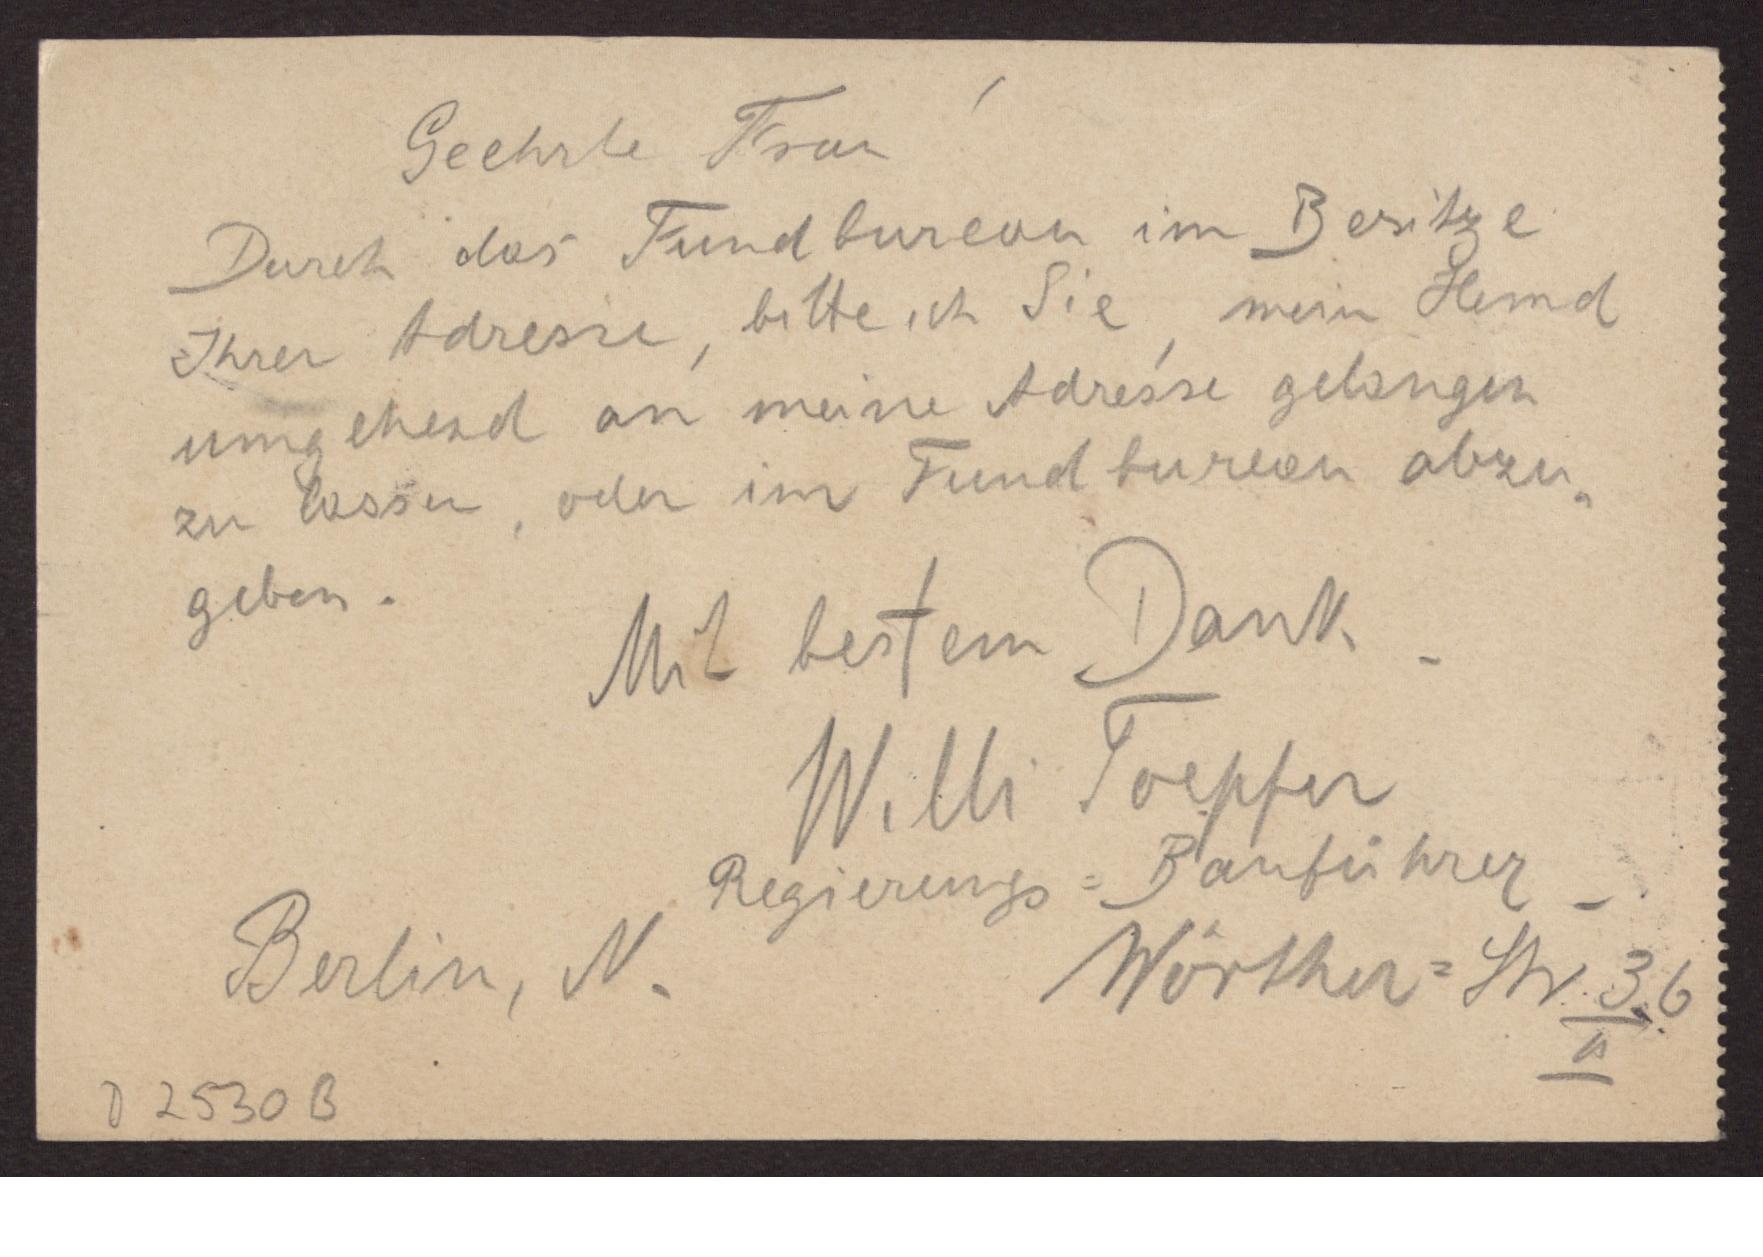 Geehrte Frau!
Durch das Fundbureau im Besitze
Ihrer Adresse, bitte ich Sie, mein Hemd
umgehend an meine Adresse gelangen
zu lassen, oder im Fundbureau abzu-
geben.
Mit bestem Dank.
Willi Toepfer
Regierungs=Bauführer.
Berlin, N. Wörther=Str. 36
II
D 2530 B